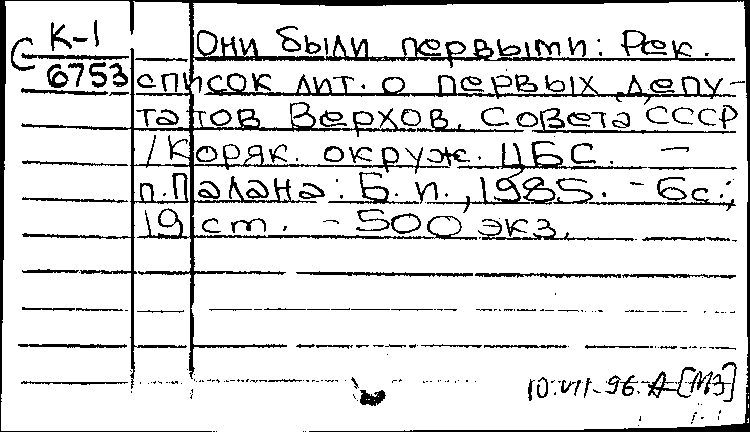 К-1
С
6753
Они были первыми: Рек.
список лит. о первых депу-
татов Верхов. Совета СССР
/ Коряк. окруж. ЦБС. –
п. Палана: Б. и., 1985. – 6с.;
19 ст. – 500 экз.
10.VII-96.